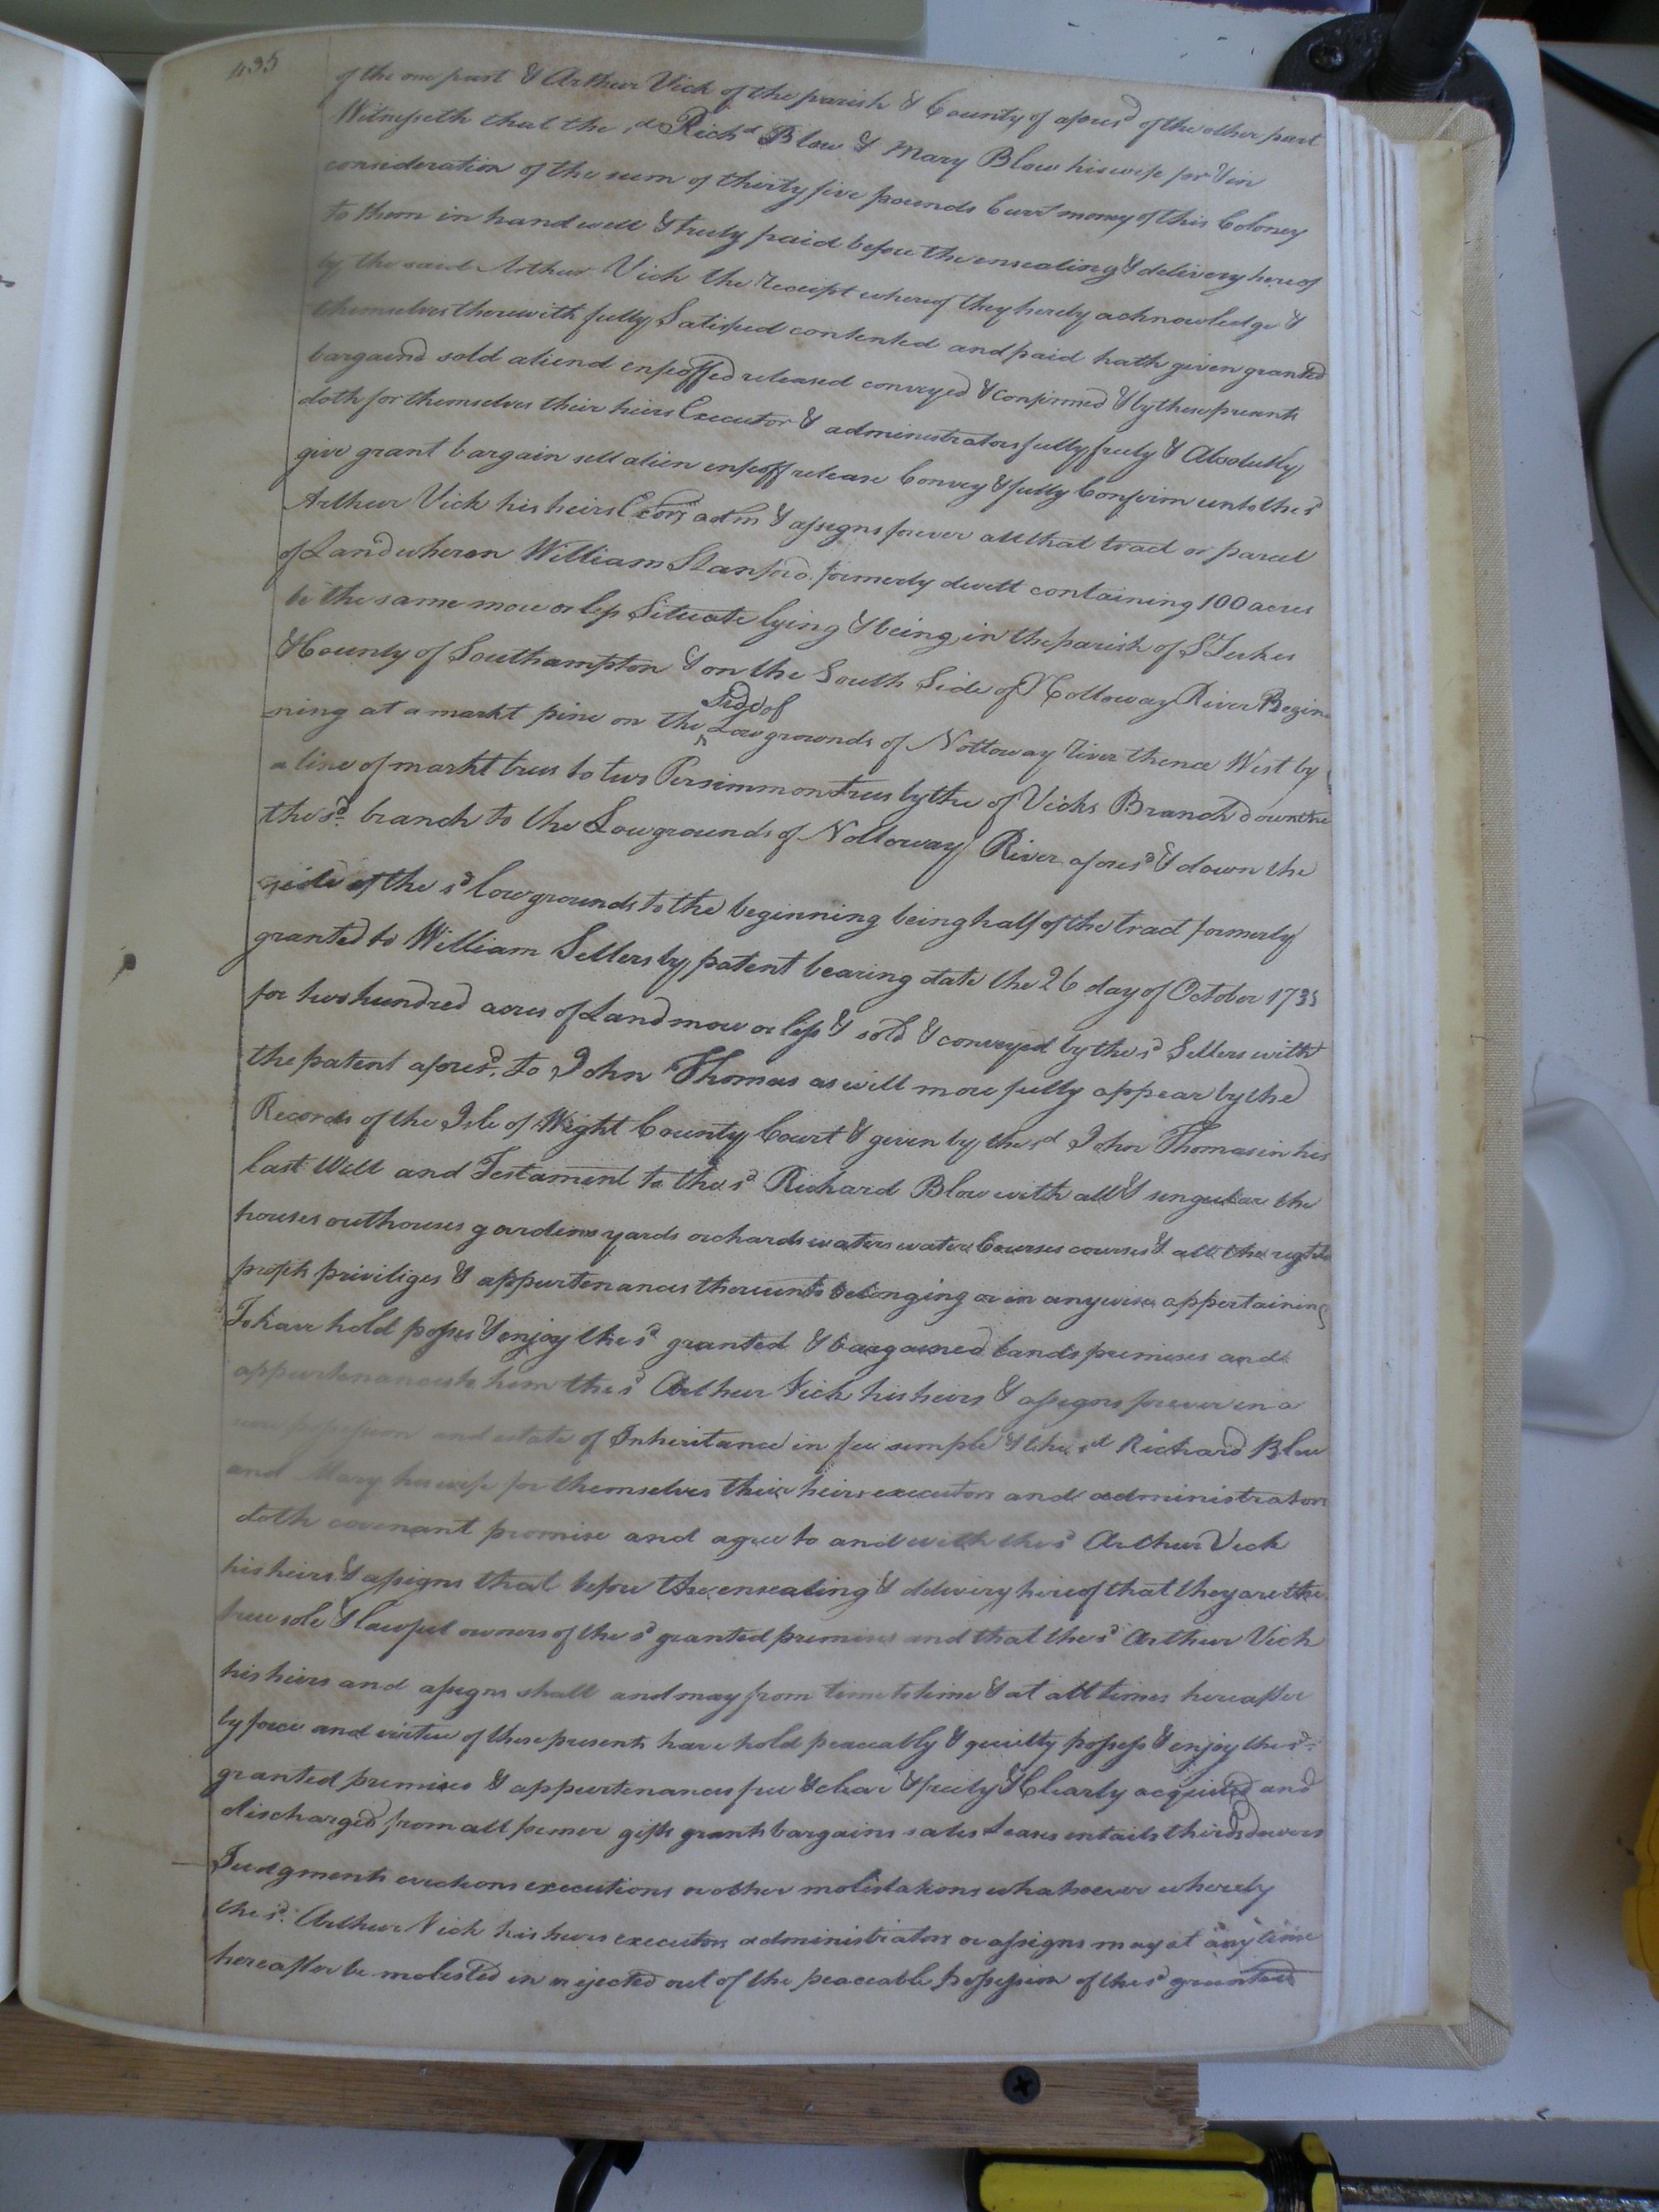 435
of the one part & Arthur Vick of the parish & County of afores'd of the other part
Witnesseth that the s'd Rich'd Blow & Mary Blow his wife for & in
consideration of the sum of thirty five pounds Curr't money of this Coloney
to them in hand well & truly paid before the ensealing & delivery hereof
by the said Arthur Vick the receipt whereof they hereby acknowledge &
themselves therewith fully Satisfied contented and paid hath given granted
bargaind sold aliend enfeoffed released conveyed & confirmed & by these presents
doth for themselves their heirs Executor & administrators fully freely & Absolutly
give grant bargain sell alien enfeoff release Convey & fully Confirm unto the s'd
Arthur Vick his heirs Exors adm & assigns forever all that tract or parcel
of Land wheron William Stanford formerly dwelt containing 100 acres
be the same more or less Situate lying & being in the parish of S't Lukes
& County of Southampton & on the South Side of Nottoway River Begin
ning at a markt pine on the Side of Low grounds of Nottoway river thence West by
a line of markt trees to two Persimmon trees by the of Vicks Branch down the
the s'd branch to the Low grounds of Nottoway River afores'd & down the
side of the s'd low grounds to the beginning being half of the tract formerly
granted to William Sellers by patent bearing date the 26 day of October 1735
for two hundred acres of Land more or less & sold & conveyed by the s'd Sellers with
the patent afores'd to John Thomas as will more fully appear by the
Records of the Isle of Wight County Court & given by the s'd John Thomas in his
last Will and Testament to the s'd Richard Blow with all & singular the
houses outhouses gardens yards orchards waters water Courses courses & all the rights
profits priviliges & appurtenances thereunto belonging or in anywise appertaining
To have hold posses & enjoy the s'd granted & bargained lands premises and
appurtenances to him the s'd Arthur Vick his heirs & assigns forever in a
sure possession and estate of Inheritance in fee simple & the s'd Richard Blow
and Mary his wife for themselves their heirs executors and administrators
doth covenant promise and agree to and with the s'd Arthur Vick
his heirs & assigns that before the ensealing & delivery hereof that they are the
true sole & lawful owners of the s'd granted premises and that the s'd Arthur Vick
his heirs and assigns shall and may from time to time & at all times hereafter
by force and virtue of these presents have hold peaceably & quietly possess & enjoy the s'd
granted premises & appurtenances free & clear & freely & Clearly acquited and
discharged from all former gifts grants bargains sales Leases entails thirds dowers
Judgments evictions executions or other molistations whatsoever whereby
the s'd Arthur Vick his heirs executors administrators or assigns may at any time
hereafter be molested in or ejected out of the peaceable possession of the s'd granted